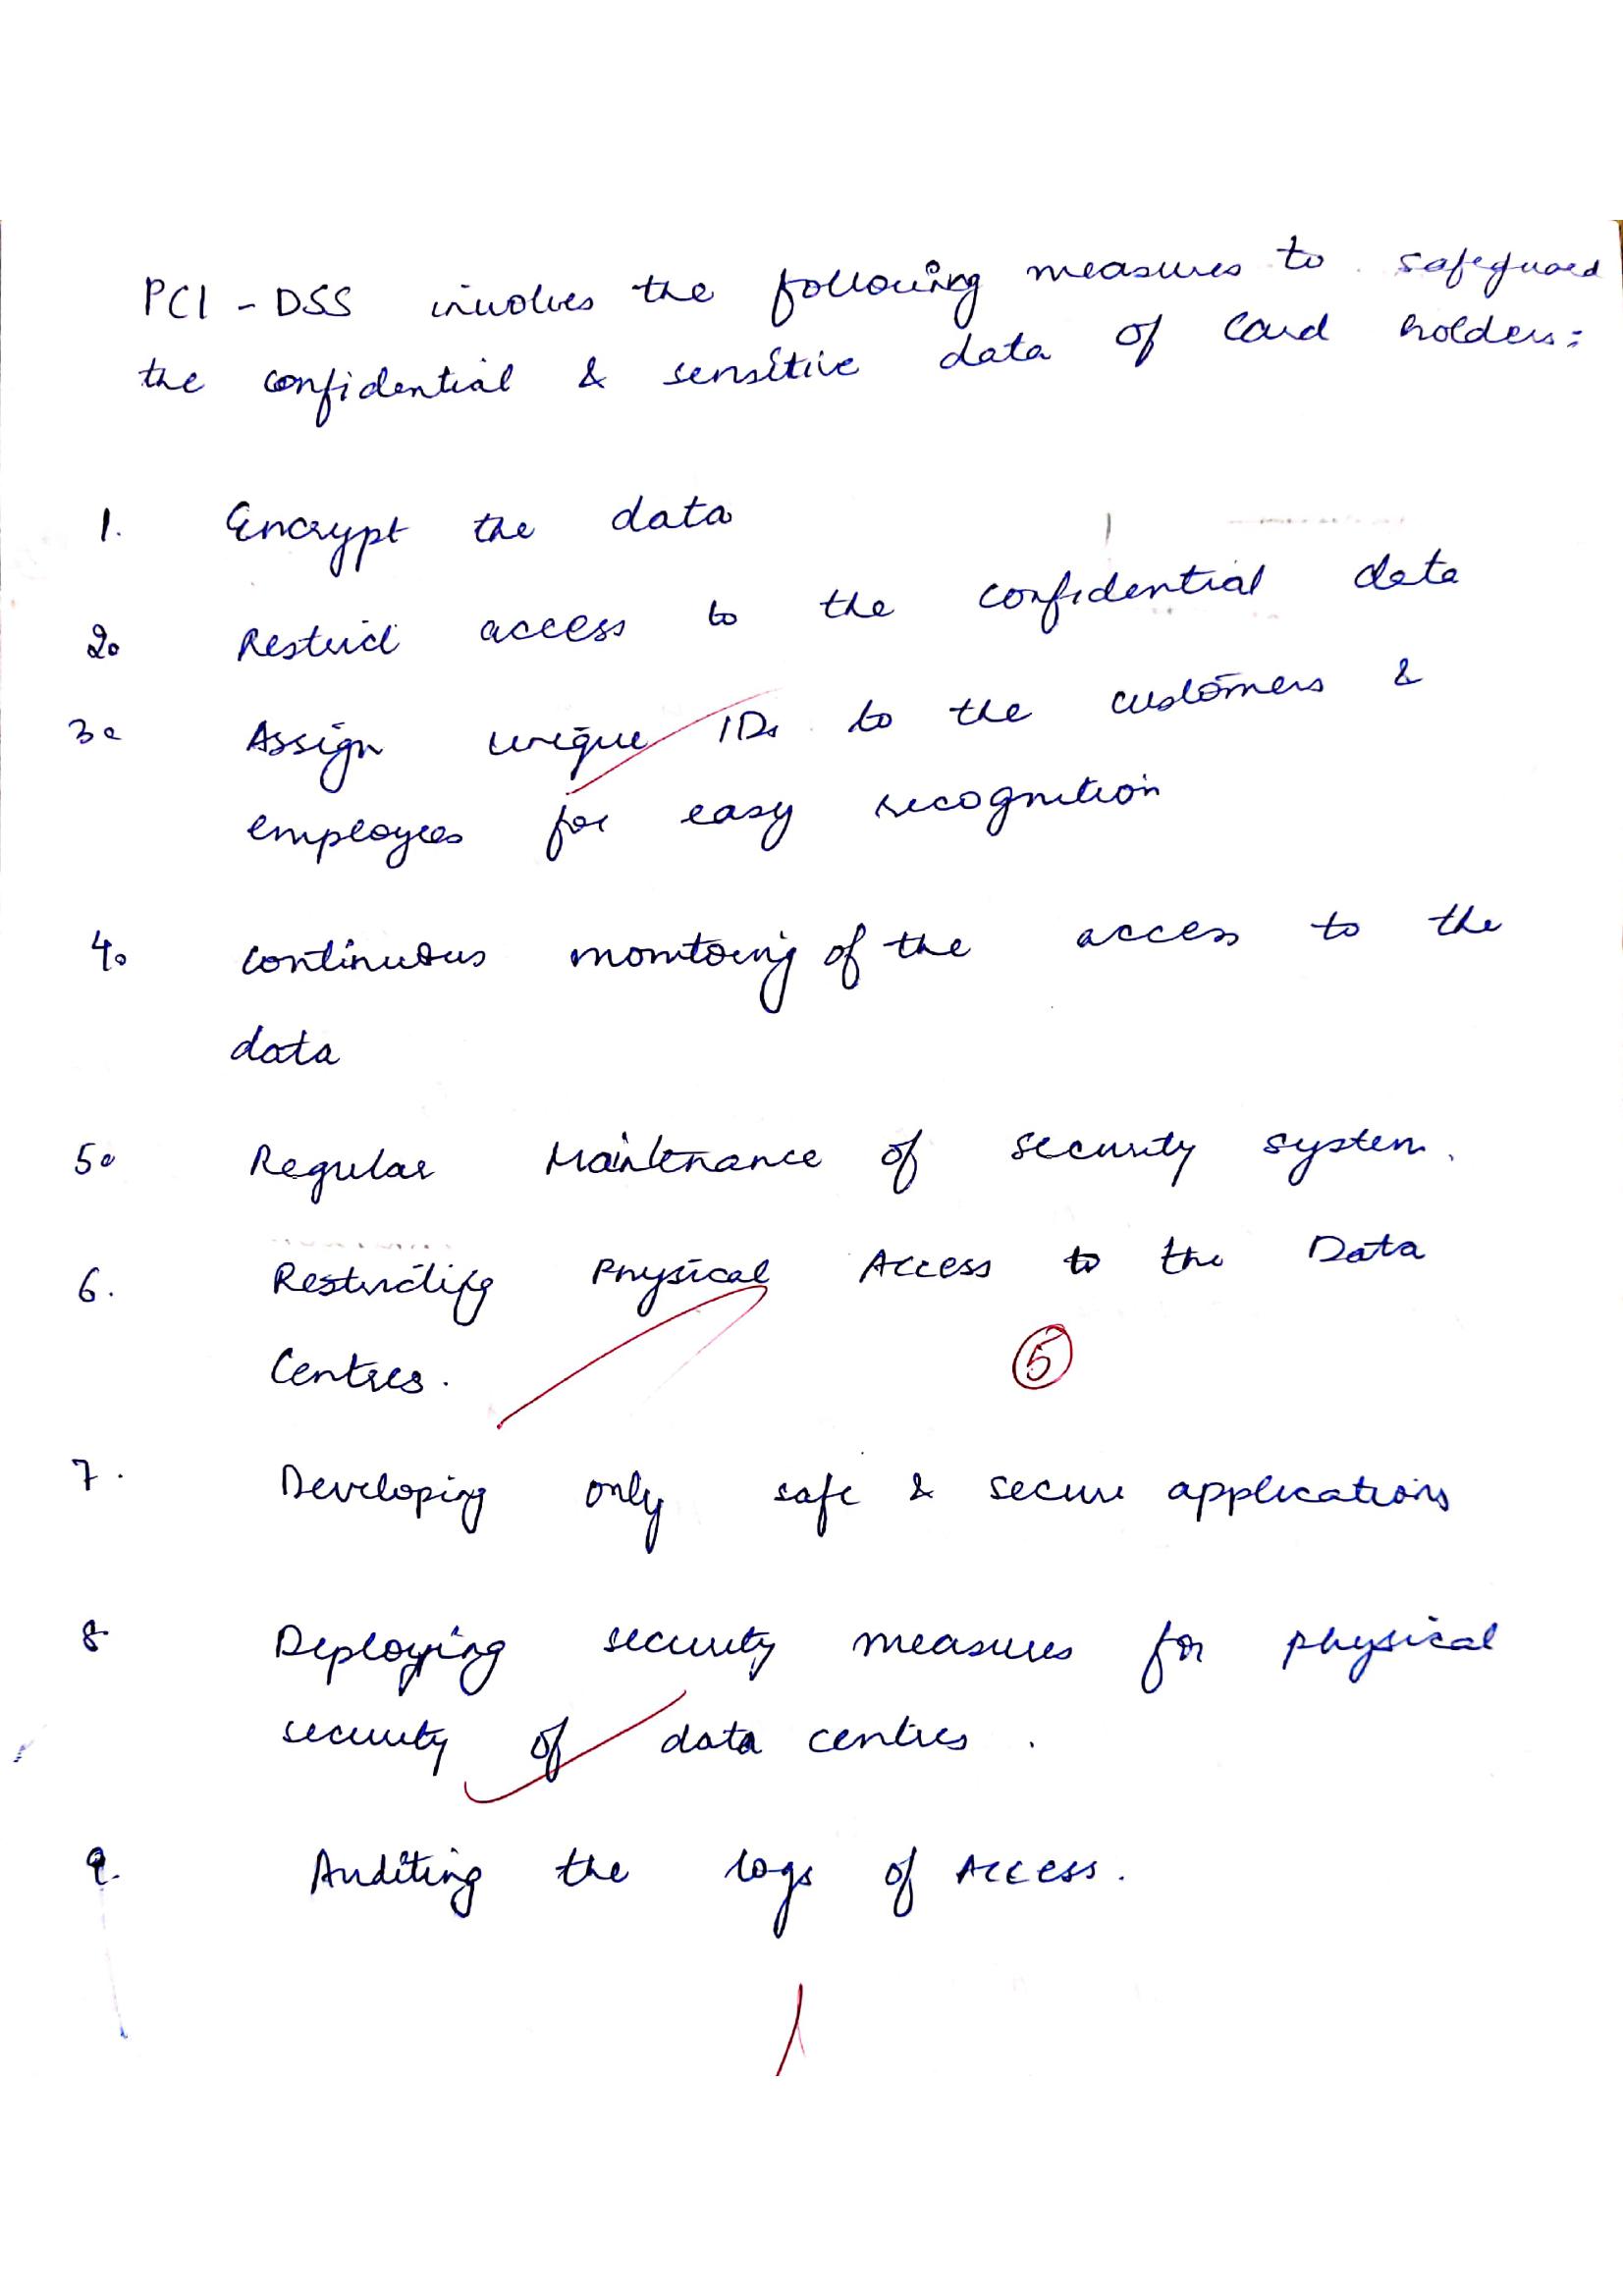 PCI - DSS involves the following measures to safeguard
the confidential & sensitive data of Card holders:
1. Encrypt the data
2. Restrict access to the confidential data
3. Assign unique IDs to the customers &
employees for easy recognition
4. Continuous monitoring of the access to the
data
5. Regular Maintenance of security system.
6. Restricting Physical Access to the Data
Centres.
5
7. Developing only safe & secure applications
8. Deploying security measures for physical
security of data centres.
9. Auditing the logs of Access.